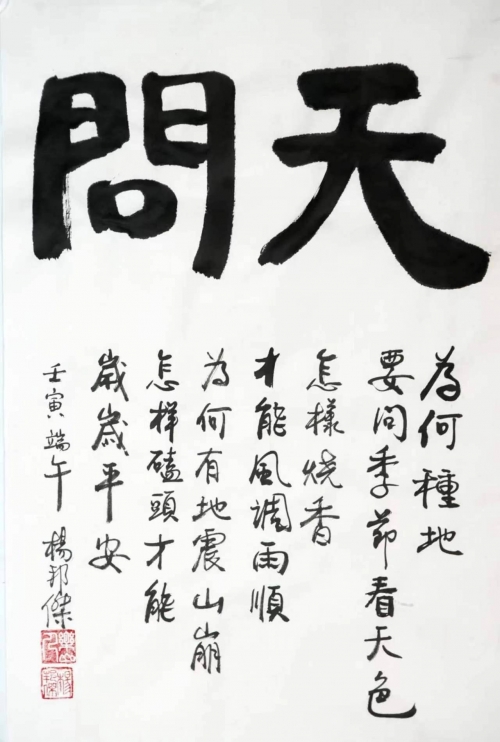 天問
為何種地
要问季節看天色
怎樣烧香
才能風調雨順
為何有地震山崩
怎样磕頭才能
歲歲平安
壬寅端午 楊邦傑